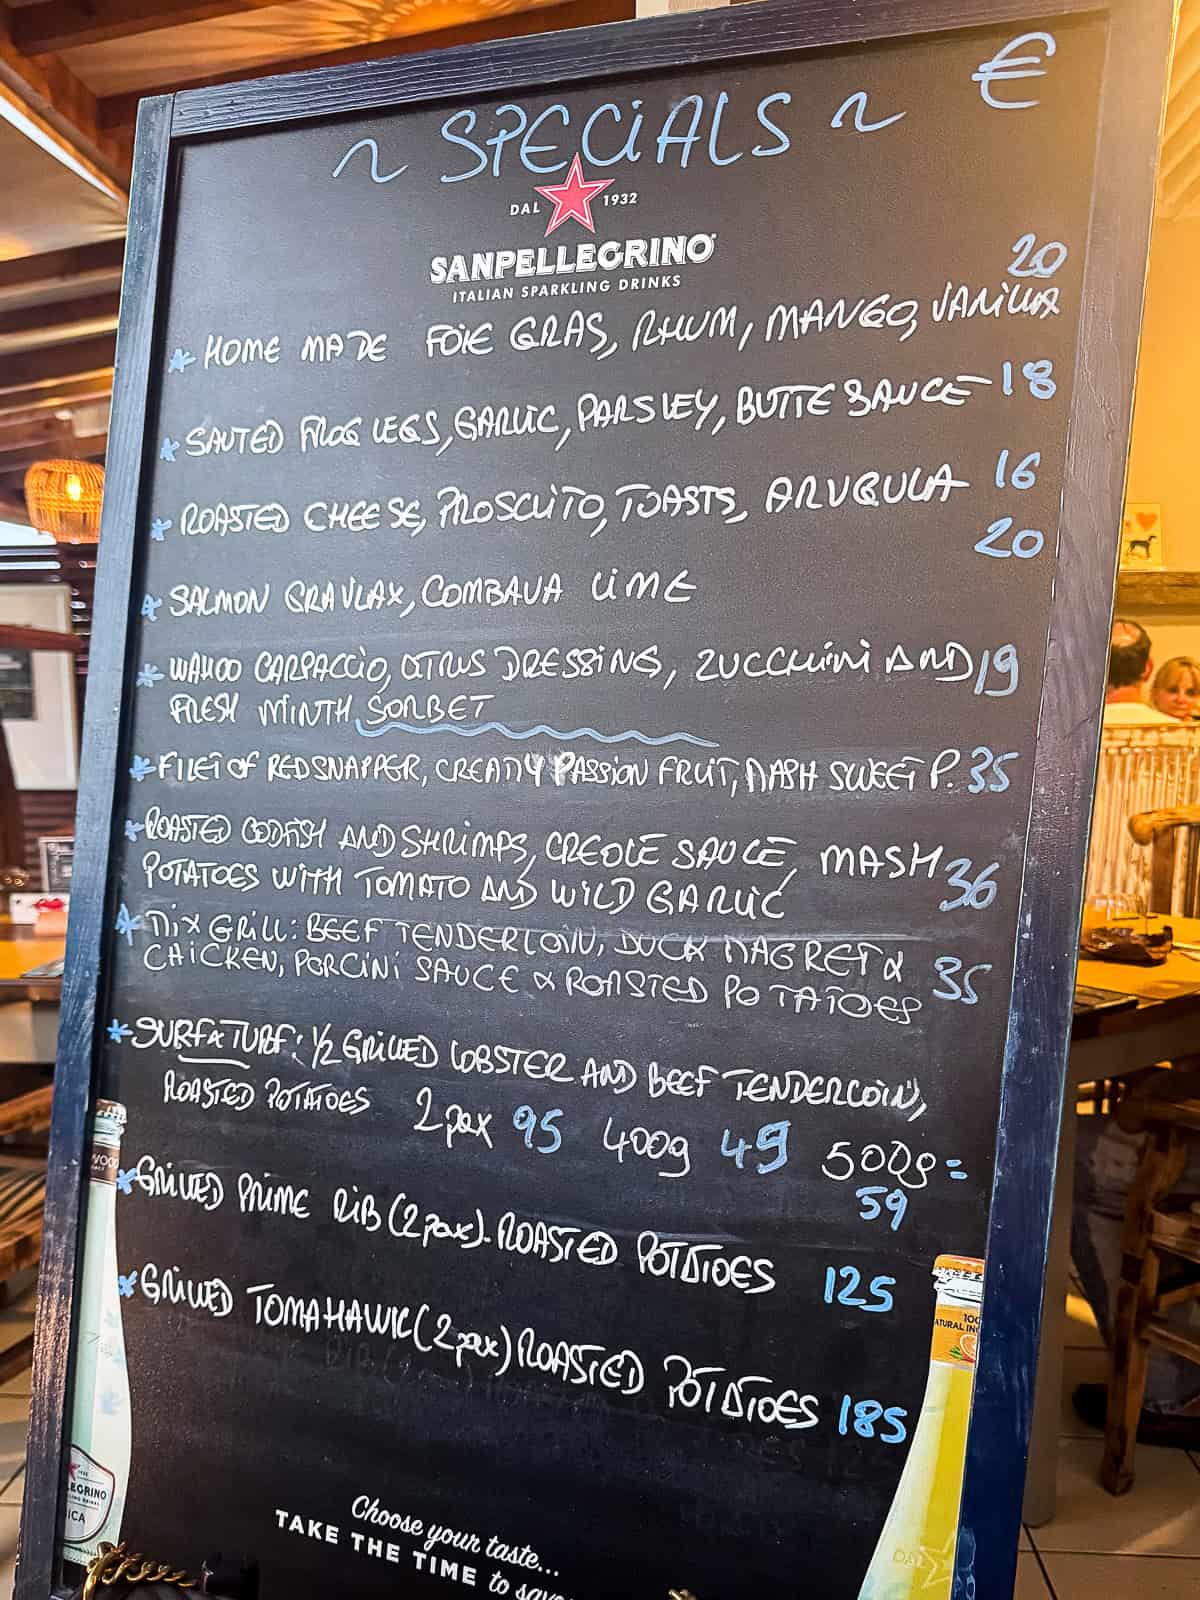 ~ SPECIALS ~ €
DAL 1932
SANPELLEGRINO
ITALIAN SPARKLING DRINKS
* HOME MADE FOIE GRAS, RHUM, MANGO, VANILLA 20
* SAUTED FROG LEGS, GARLIC, PARSLEY, BUTTE SAUCE 18
* ROASTED CHEESE, PROSCIUTO, TOASTS, ARUGULA 16
* SALMON GRAVLAX, COMBAVA LIME 20
* WAHOO CARPACCIO, CITRUS DRESSING, ZUCCHINI AND 19
FRESH MINTH SORBET
* FILET OF RED SNAPPER, CREAMY PASSION FRUIT, MASH SWEET P. 35
* ROASTED CODFISH AND SHRIMPS, CREOLE SAUCE, MASH 36
POTATOES WITH TOMATO AND WILD GARLIC
* MIX GRILL: BEEF TENDERLOIN, DUCK MAGRET &
CHICKEN, PORCINI SAUCE & ROASTED POTATOES 35
* SURF & TURF: 1/2 GRILLED LOBSTER AND BEEF TENDERLOIN,
ROASTED POTATOES 2pax 95 400g 49 500g =
59
* GRILLED PRIME RIB (2pax). ROASTED POTATOES 125
* GRILLED TOMAHAWK (2pax) ROASTED POTATOES 185
Choose your taste...
TAKE THE TIME to